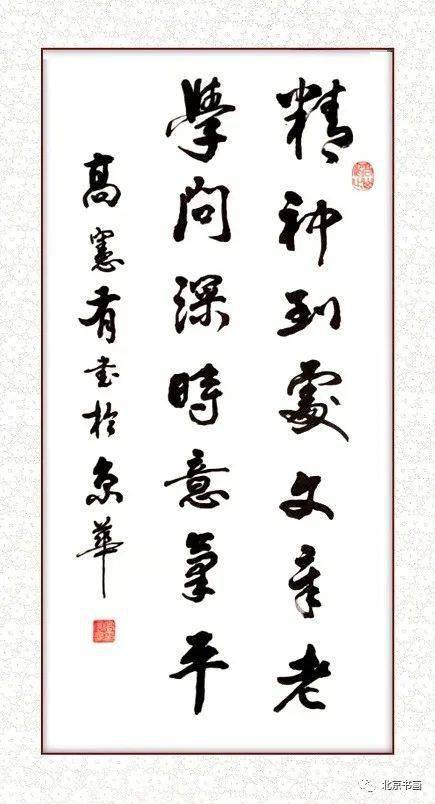 精神到處文章老
學問深時意氣平
高憲有書於京華
北京书画